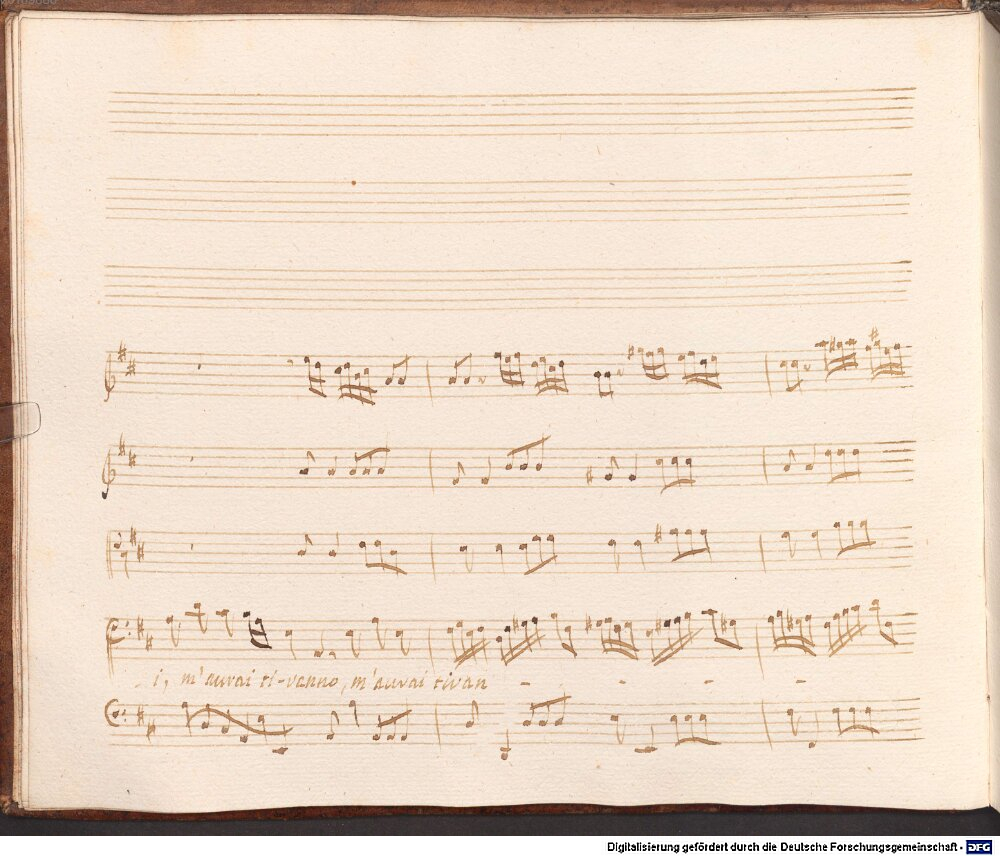 i, m'aurai ti-ranno, m'aurai tiran - - - -
Digitalisierung gefördert durch die Deutsche Forschungsgemeinschaft - DFG